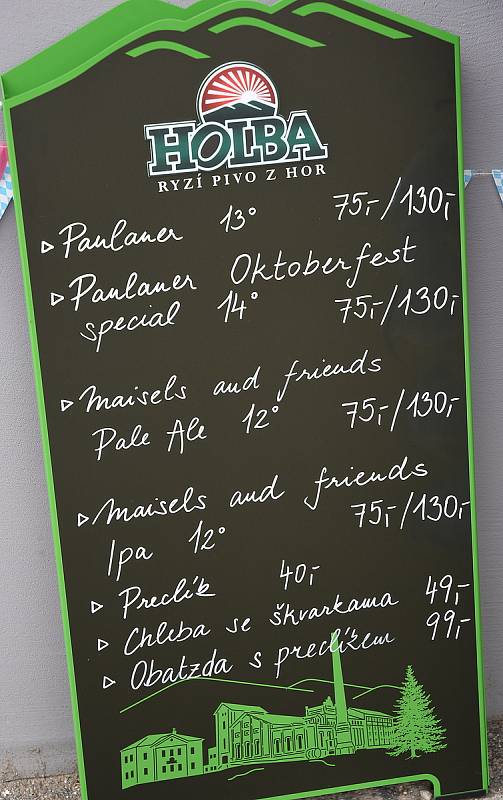 HOLBA
RYZÍ PIVO Z HOR
▹ Paulaner 13° 75,-/130,-
▹ Paulaner Oktoberfest
special 14° 75,-/130,-
▹ Maisels and friends
Pale Ale 12° 75,-/130,-
▹ Maisels and friends
Ipa 12° 75,-/130,-
▹ Preclík 40,-
▹ Chleba se škvarkama 49,-
▹ Obatzda s preclížem 99,-